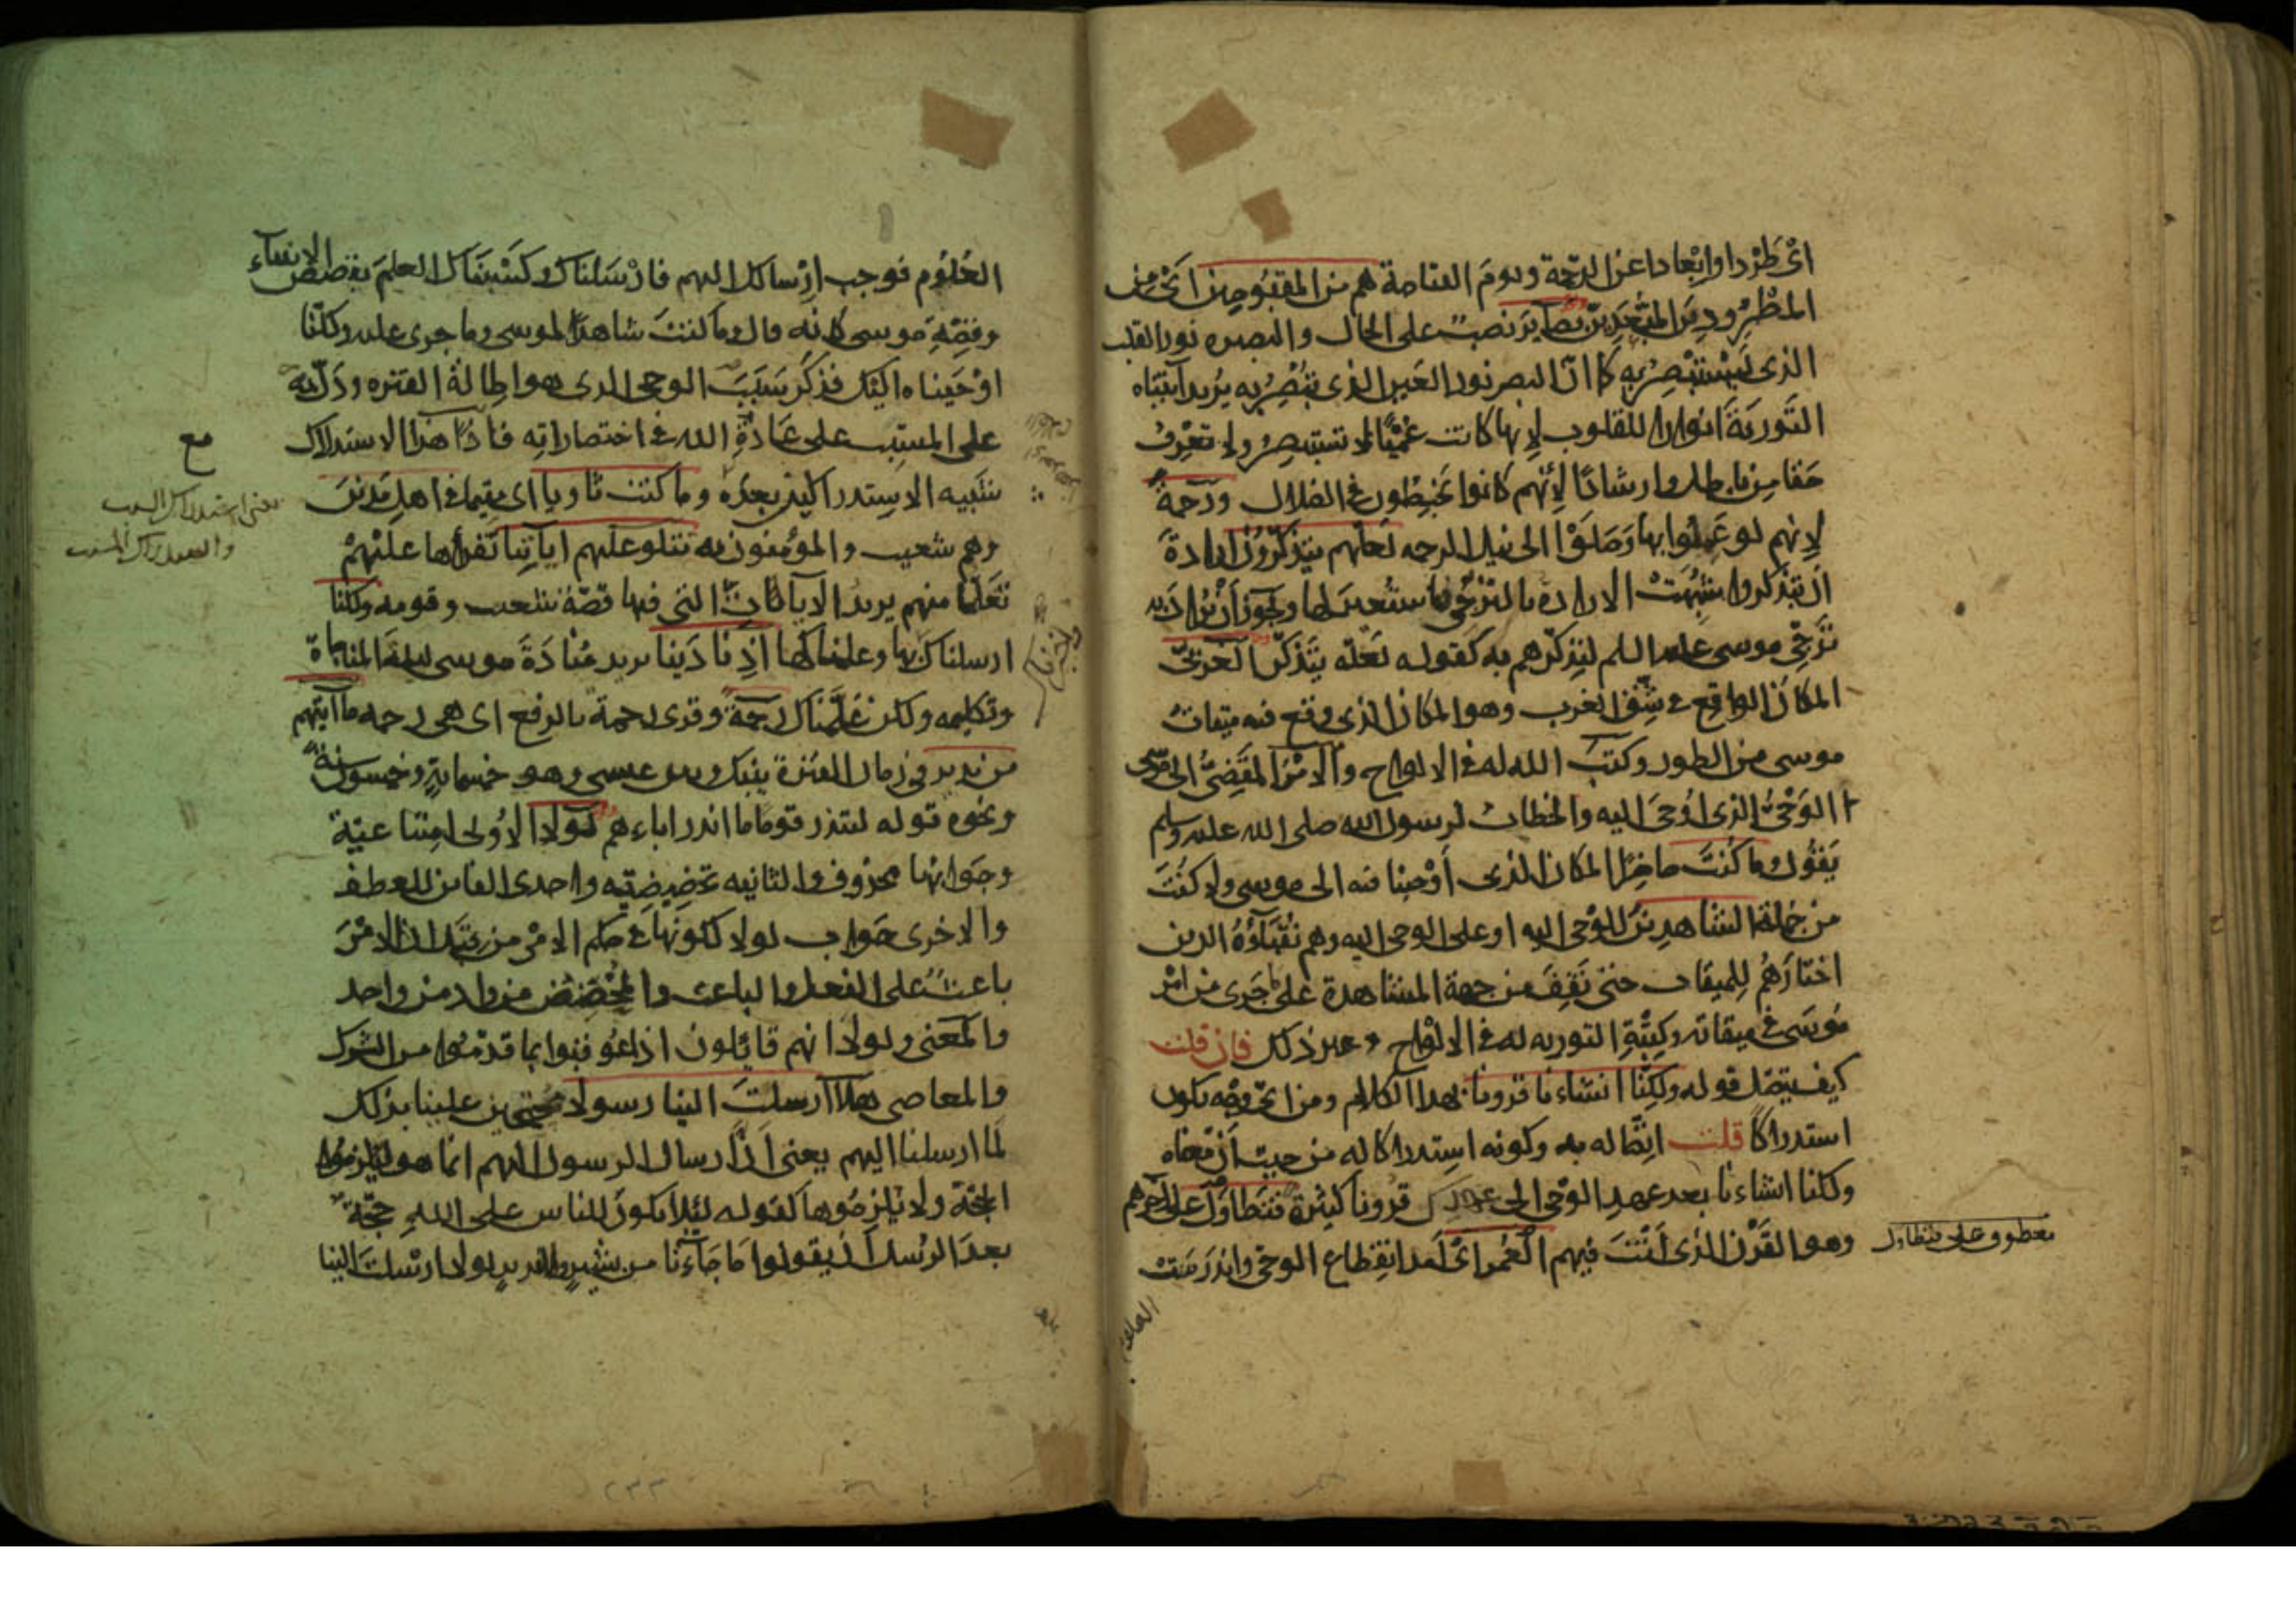 اى طردا وابعادا عن الرحمة ويوم القيامة هم من المقبوحين اى من
المطرودين المبعدين بصاير نصب على الحال والبصيره نور القلب
الذى يستبصر به كما ان البصر نور العين الذى تبصر به يريد آتيناه
التورية انوارا للقلوب لانها كانت عميا لا تستبصر ولا تعرف
حقا من باطل وارشادا لانهم كانوا يخبطون فى الضلال ورحمة
لانهم لو عملوا بها وصلوا الى نيل الرحمه لعلهم يتذكرون ارادة
ان يتذكروا شبهت الارادة بالترجى فاستعير لها ويجوز ان يراد به
ترجى موسى عليه السلم لتذكرهم به كقوله لعله يتذكر الغربى
المكان الواقع فى شق الغرب وهو المكان الذى وقع فيه ميقات
موسى من الطور وكتب الله له فى الالواح والامر المقضى الى موسى
الوحى الذى اوحى اليه والخطاب لرسول الله صلى الله عليه وسلم
يقول وما كنت حاضرا المكان الذى اوحينا فيه الى موسى ولا كنت
من جملة الشاهدين للوحى اليه او على الوحى اليه وهم نقباؤه الذين
اختارهم للميقات حتى تقف من جهة المشاهدة على ما جرى من امر
موسى فى ميقاته وكتبة التوريه له فى الالواح وغير ذلك فان قلت
كيف يتصل قوله ولكنا انشاءنا قرونا بهذا الكلام ومن اى وجه يكون
استدراكا قلت اتصاله به وكونه استدراكا له من حيث ان معناه
ولكنا انشاءنا بعد عهد الوحى الى عهدك قرونا كثيرة فتطاول على آخرهم
وهو القرن الذى انت فيهم العمر اى امد انقطاع الوحى واندرست
معطوف على فتطاول
العلوم
العلوم فوجب ارسالك اليهم فارسلناك وكسبناك العلم بقصص الانبياء
وقصة موسى كانه قال وما كنت شاهدا لموسى وما جرى عليه ولكنا
اوحيناه اليك فذكر سبب الوحى الذى هو اطالة الفتره ودل به
على المسبب على عادة الله فى اختصاراته فاذا هذا الاستدراك
شبيه الاستدراكين بعده وما كنت ثاويا اى مقيما فى اهل مدين
وهم شعيب والمؤمنون به تتلو عليهم اياتنا تقرأها عليهم
تعلما منهم يريد الايات التى فيها قصة شعيب وقومه ولكنا
ارسلناك بها وعلمناكها اذ نادينا يريد مناداة موسى ليلة المناجاة
وتكليمه ولكن علمناك رحمة وقرى رحمة بالرفع اى هى رحمه ما آتيهم
من نذير فى زمان الفترة بينك وبين عيسى وهو خمسماية وخمسون سنة
ونحوه قوله لتنذر قوما ما انذر اباءهم لولا الاولى امتناعية
وجوابها محذوف والثانيه تحضيضيه واحدى الفاين للعطف
والاخرى جواب لولا لكونها فى حكم الامر من قبل ان الامر
باعث على الفعل والباعث والمحضض من واد من واحد
والمعنى ولولا انهم قايلون اذا عوقبوا بما قدموا من الشرك
والمعاصى هلا ارسلت الينا رسولا محتجين علينا بذلك
لما ارسلنا اليهم يعنى ان ارسال الرسول اليهم انما هو ليلزموا
الحجة ولا يلزموها كقوله لئلا يكون للناس على الله حجة
بعد الرسل ان يقولوا ما جاءنا من بشير ولا نذير لولا ارسلت الينا
مع
يعنى استدراك السبب